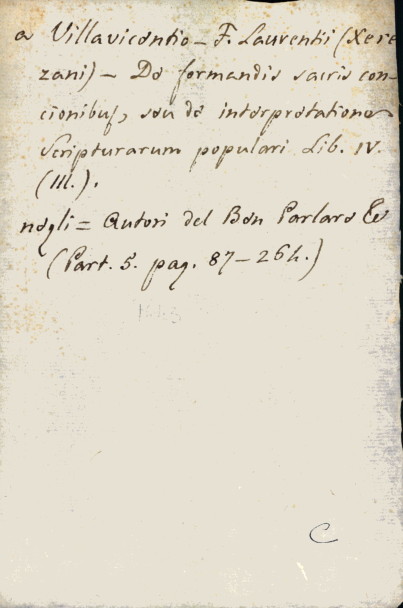 a Villavicentio – F. Laurentii (Xere
zani) – De formandis sacris con-
cionibus, seu de interpretatione
Scripturarum populari Lib. IV.
(III.).
negli = Autori del Ben Parlare &c
(Part. 5. pag. 87 – 264.)
C